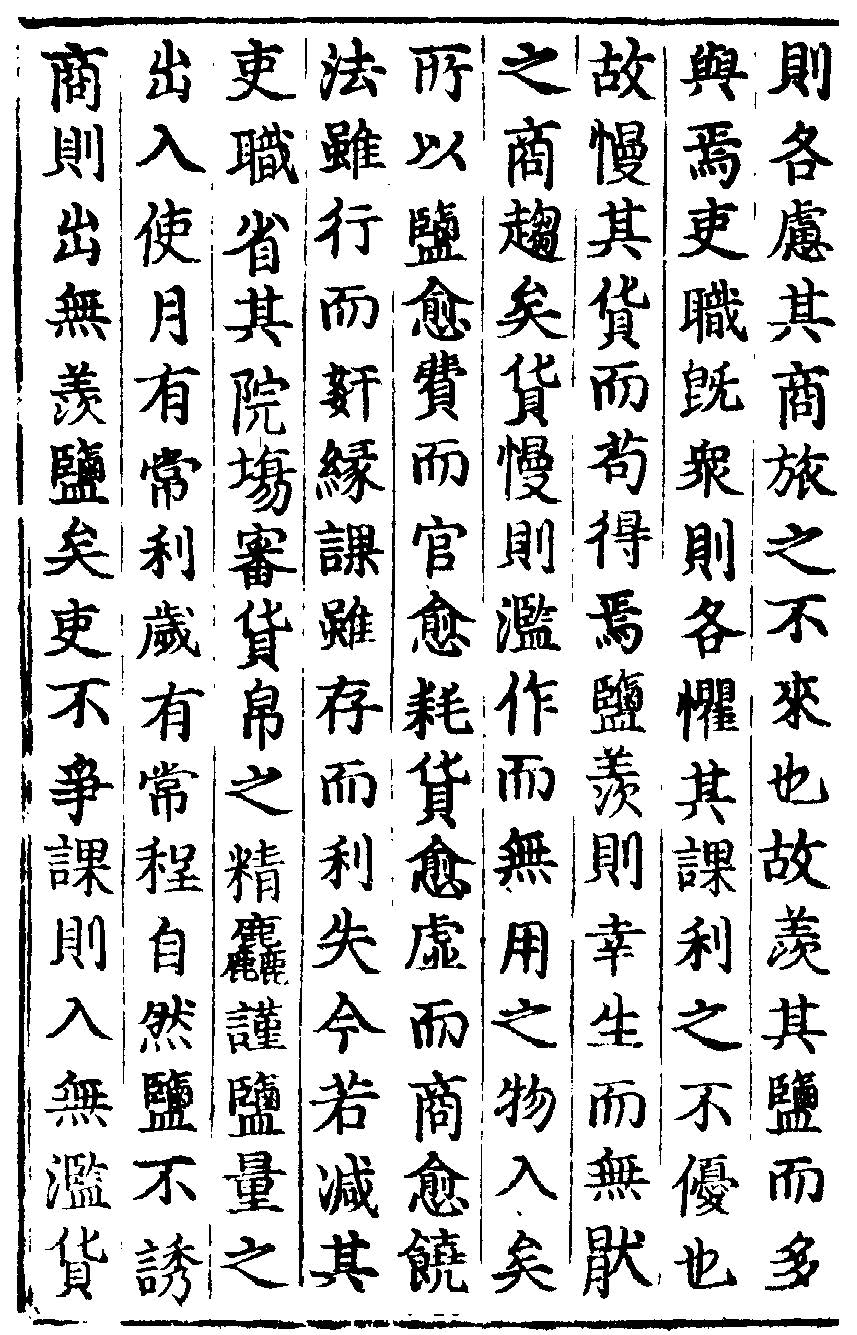 則各慮其商旅之不來也故羨其鹽而多
與焉吏職旣衆則各懼其課利之不優也
故慢其貨而苟得焉鹽羨則幸生而無猒
之商趨矣貨慢則濫作而無用之物入矣
所以鹽愈費而官愈耗貨愈虛而商愈饒
法雖行而姧緣課雖存而利失今若減其
吏職省其院塲審貨帛之精麤謹鹽量之
出入使月有常利歲有常程自然鹽不誘
商則出無羨鹽矣吏不爭課則入無濫貨